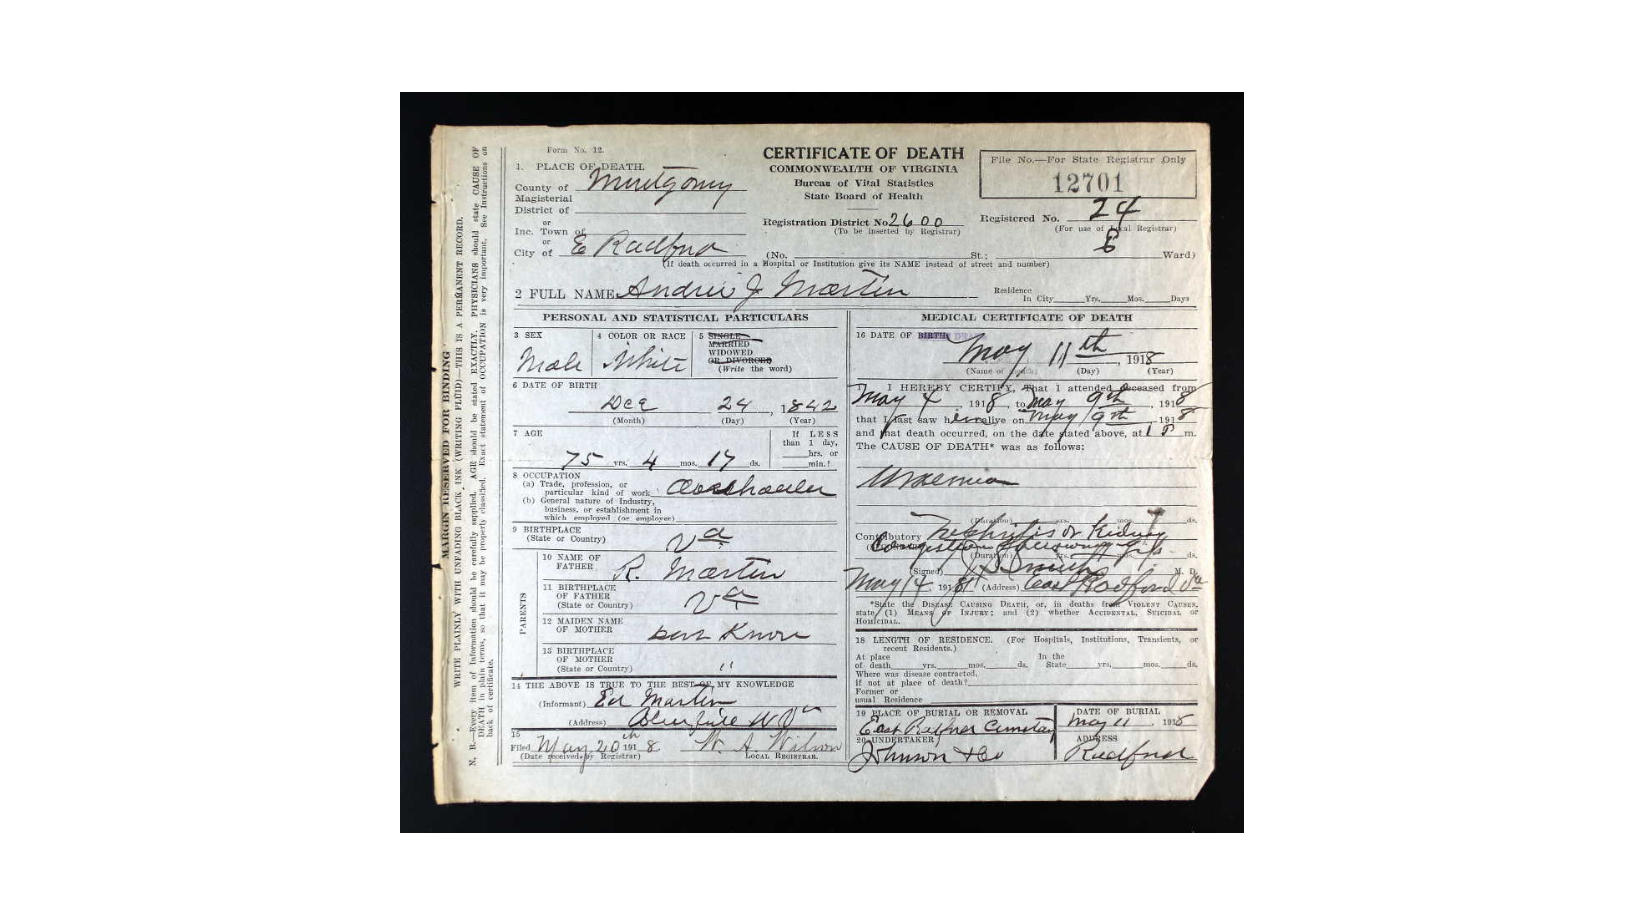 Form No. 12.
CERTIFICATE OF DEATH
COMMONWEALTH OF VIRGINIA
Bureau of Vital Statistics
State Board of Health
File No.—For State Registrar Only
12701
1. PLACE OF DEATH.
County of Montgomery
Magisterial
District of
or
Inc. Town of
or
City of E Radford
Registration District No 2600
(To be inserted by Registrar)
Registered No. 24
(For use of Local Registrar)
(No. St.; Ward)
(If death occurred in a Hospital or Institution give its NAME instead of street and number)
2 FULL NAME Andrew J Martin
Residence
In City Yrs. Mos. Days
PERSONAL AND STATISTICAL PARTICULARS
3 SEX
Male
4 COLOR OR RACE
White
5 SINGLE
MARRIED
WIDOWED
OR DIVORCED
(Write the word)
6 DATE OF BIRTH
Dec 24, 1842
(Month) (Day) (Year)
7 AGE
75 yrs. 4 mos. 17 ds.
If LESS
than 1 day,
hrs. or
min.?
8 OCCUPATION
(a) Trade, profession, or
particular kind of work
(b) General nature of Industry,
business, or establishment in
which employed (or employer)
9 BIRTHPLACE
(State or Country) Va
PARENTS
10 NAME OF
FATHER R. Martin
11 BIRTHPLACE
OF FATHER
(State or Country) Va
12 MAIDEN NAME
OF MOTHER dont Know
13 BIRTHPLACE
OF MOTHER
(State or Country) "
14 THE ABOVE IS TRUE TO THE BEST OF MY KNOWLEDGE
(Informant) Ed Martin
(Address) W Va
15
Filed May 20th 1918 W. A. Wilson
(Date received by Registrar) LOCAL REGISTRAR.
MEDICAL CERTIFICATE OF DEATH
16 DATE OF DEATH
May 11th, 1918
(Name of month) (Day) (Year)
17 I HEREBY CERTIFY, That I attended deceased from
May 4, 1918, to May 9th, 1918
that I last saw him alive on May 9th, 1918
and that death occurred, on the date stated above, at 1 P m.
The CAUSE OF DEATH* was as follows:
Uraemia
(Duration) yrs. mos. ds.
Contributory Nephritis or Kidney
Congestion
(Duration) yrs. mos. ds.
(Signed) M. D.
May 14 1918 (Address) East Radford Va
*State the DISEASE CAUSING DEATH, or, in deaths from VIOLENT CAUSES,
state (1) MEANS OF INJURY; and (2) whether ACCIDENTAL, SUICIDAL or
HOMICIDAL.
18 LENGTH OF RESIDENCE. (For Hospitals, Institutions, Transients, or
recent Residents.)
At place In the
of death yrs. mos. ds. State yrs. mos. ds.
Where was disease contracted,
if not at place of death?
Former or
usual Residence
19 PLACE OF BURIAL OR REMOVAL
East Radford Cemetary
DATE OF BURIAL
May 11 1918
20 UNDERTAKER
Johnson & Co
ADDRESS
Radford
MARGIN RESERVED FOR BINDING
WRITE PLAINLY WITH UNFADING BLACK INK (WRITING FLUID)—THIS IS A PERMANENT RECORD.
N. B.—Every item of information should be carefully supplied. AGE should be stated EXACTLY. PHYSICIANS should state CAUSE OF
DEATH in plain terms, so that it may be properly classified. Exact statement of OCCUPATION is very important. See Instructions on
back of certificate.